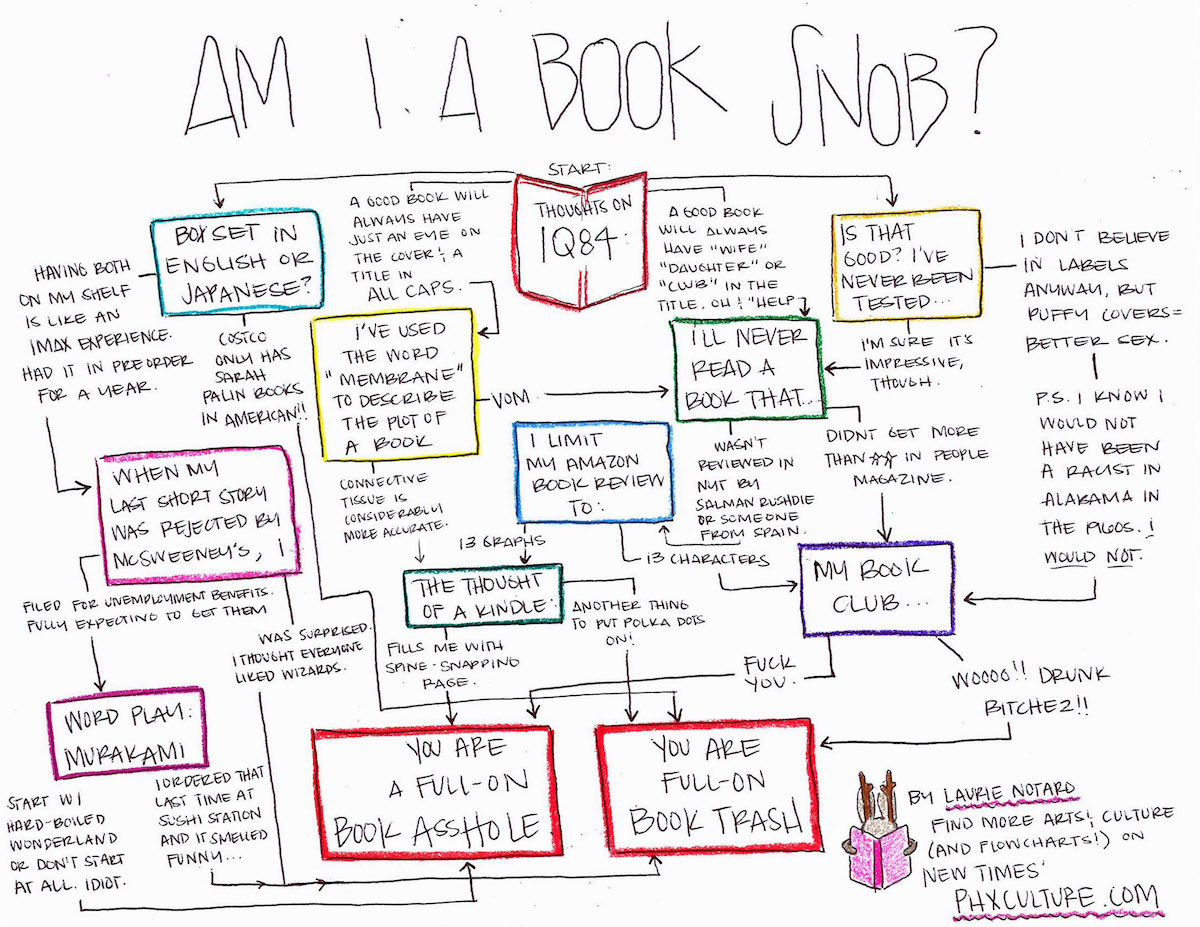 AM I A BOOK SNOB?
START:
THOUGHTS ON
1Q84:
BOX SET IN
ENGLISH OR
JAPANESE?
HAVING BOTH
ON MY SHELF
IS LIKE AN
IMAX EXPERIENCE.
HAD IT IN PREORDER
FOR A YEAR.
COSTCO
ONLY HAS
SARAH
PALIN BOOKS
IN AMERICAN!!
A GOOD BOOK WILL
ALWAYS HAVE
JUST AN EYE ON
THE COVER & A
TITLE IN
ALL CAPS.
A GOOD BOOK
WILL ALWAYS
HAVE "WIFE"
"DAUGHTER" OR
"CLUB" IN THE
TITLE. OH & "HELP"
IS THAT
GOOD? I'VE
NEVER BEEN
TESTED...
I DON'T BELIEVE
IN LABELS
ANYWAY, BUT
PUFFY COVERS=
BETTER SEX.
P.S. I KNOW I
WOULD NOT
HAVE BEEN
A RACIST IN
ALABAMA IN
THE 1960S. I
WOULD NOT.
I'M SURE IT'S
IMPRESSIVE,
THOUGH.
I'VE USED
THE WORD
"MEMBRANE"
TO DESCRIBE
THE PLOT OF
A BOOK
VOM
CONNECTIVE
TISSUE IS
CONSIDERABLY
MORE ACCURATE.
I'LL NEVER
READ A
BOOK THAT...
WASN'T
REVIEWED IN
NYT BY
SALMAN RUSHDIE
OR SOMEONE
FROM SPAIN.
DIDNT GET MORE
THAN ☆☆ IN PEOPLE
MAGAZINE.
I LIMIT
MY AMAZON
BOOK REVIEW
TO:
13 GRAPHS
13 CHARACTERS
WHEN MY
LAST SHORT STORY
WAS REJECTED BY
MCSWEENEY'S, I
FILED FOR UNEMPLOYMENT BENEFITS.
FULLY EXPECTING TO GET THEM
WAS SURPRISED.
I THOUGHT EVERYONE
LIKED WIZARDS.
THE THOUGHT
OF A KINDLE:
FILLS ME WITH
SPINE-SNAPPING
RAGE.
ANOTHER THING
TO PUT POLKA DOTS
ON!
MY BOOK
CLUB...
FUCK
YOU.
WOOOO!! DRUNK
BITCHEZ!!
WORD PLAY:
MURAKAMI
START W/
HARD-BOILED
WONDERLAND
OR DON'T START
AT ALL. IDIOT.
I ORDERED THAT
LAST TIME AT
SUSHI STATION
AND IT SMELLED
FUNNY...
YOU ARE
A FULL-ON
BOOK ASSHOLE
YOU ARE
FULL-ON
BOOK TRASH
BY LAURIE NOTARO
FIND MORE ARTS & CULTURE
(AND FLOWCHARTS!) ON
NEW TIMES'
PHXCULTURE.COM